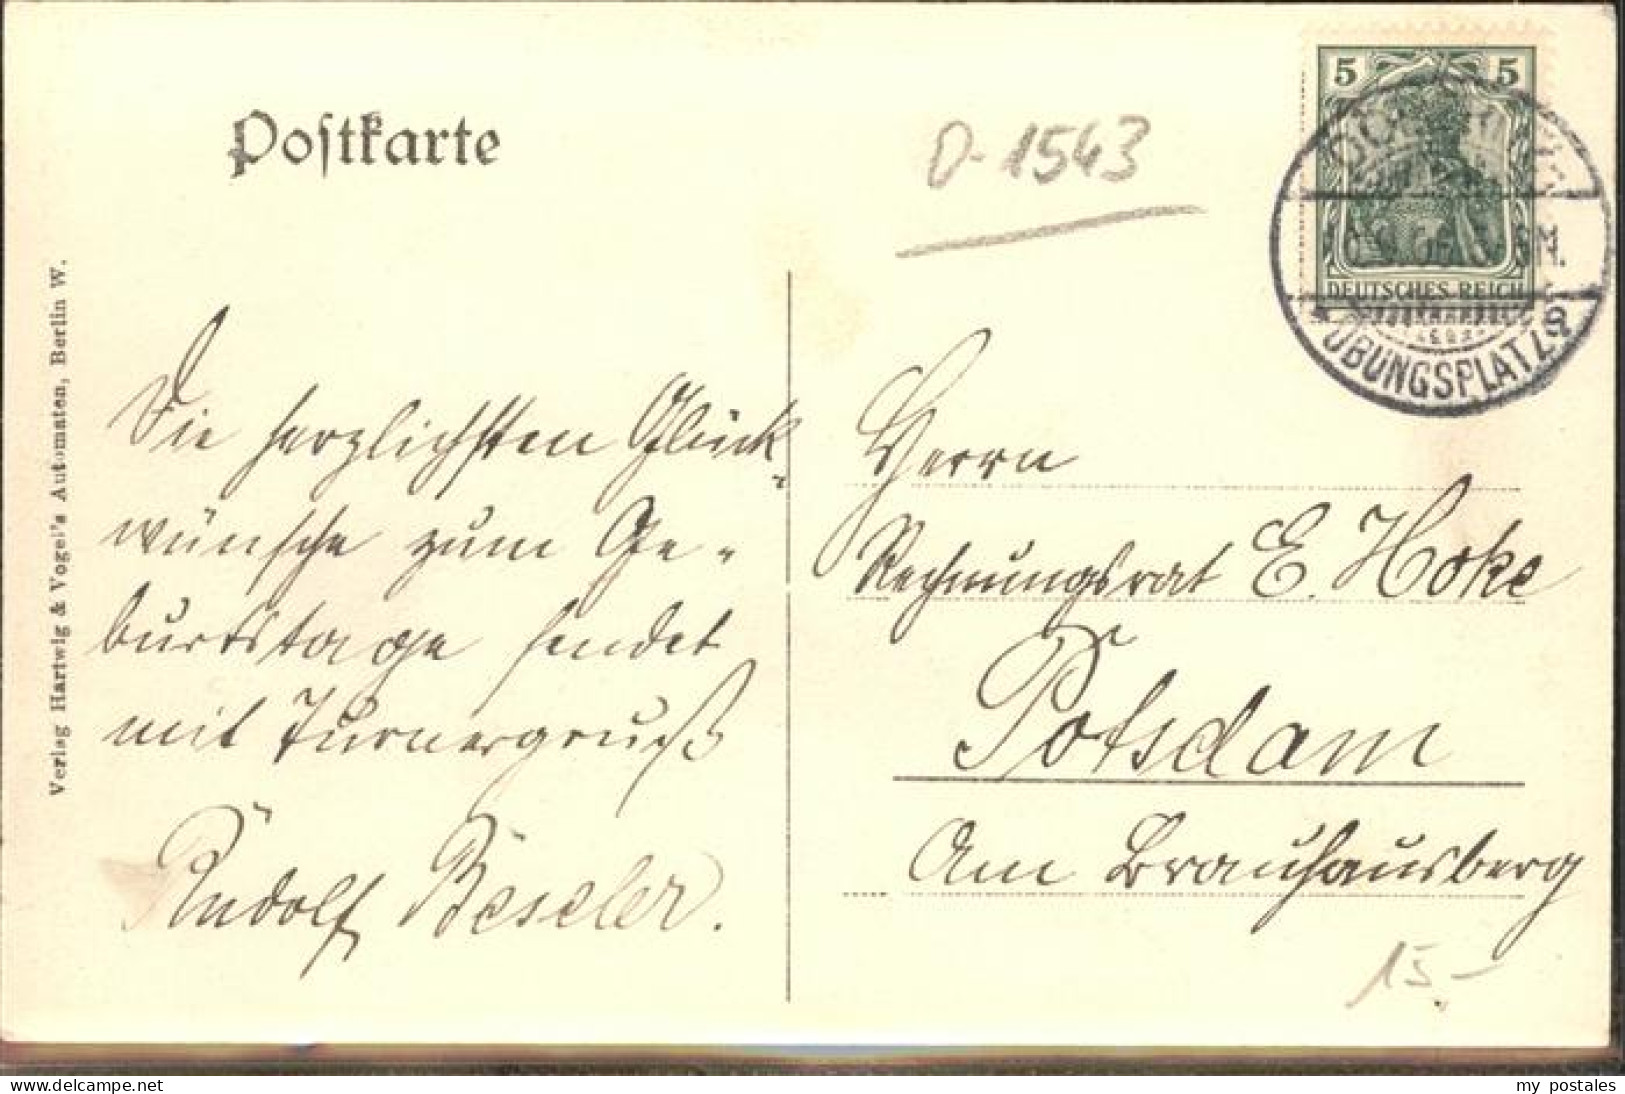 Postkarte
D-1543
5 5
DEUTSCHES REICH
ÜBUNGSPLATZ
Verlag Hartwig & Vogel's Automaten, Berlin W.
Die herzlichsten Glück-
wünsche zum Ge-
burtstage sendet
mit Turnergruß
Rudolf Beseler.
Herrn
Rechnungsrat E. Hoke
Potsdam
Am Brauhausberg
15.-
delcampe.net
my postales